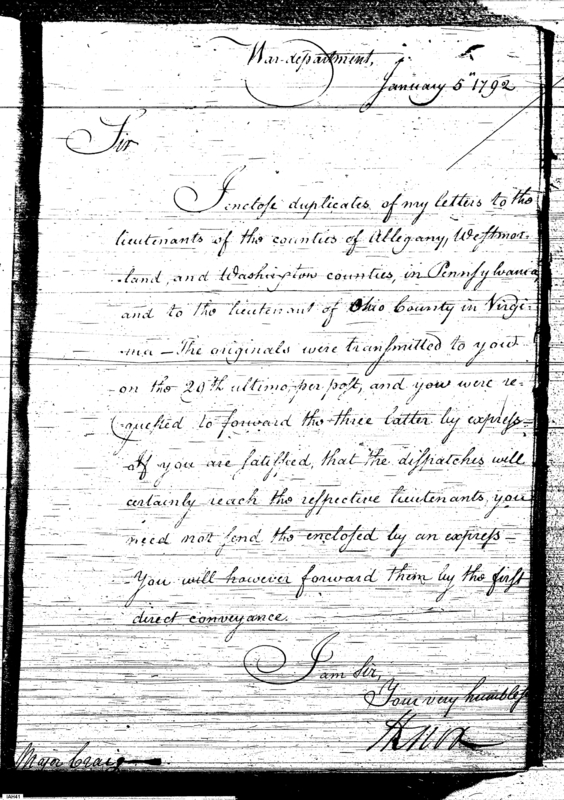 War-department,
January 5th 1792
Sir
I enclose duplicates of my letters to the
lieutenants of the counties of Allegany, Westmor-
land, and Washington counties, in Pennsylvania,
and to the lieutenant of Ohio County in Virgi-
nia — The originals were transmitted to you
on the 29th ultimo, per post, and you were re-
quested to forward the three latter by express —
If you are satisfied, that the dispatches will
certainly reach the respective lieutenants, you
need not send the enclosed by an express —
You will however forward them by the first
direct conveyance.
I am Sir,
Your very humble
HKnox
Major Craig